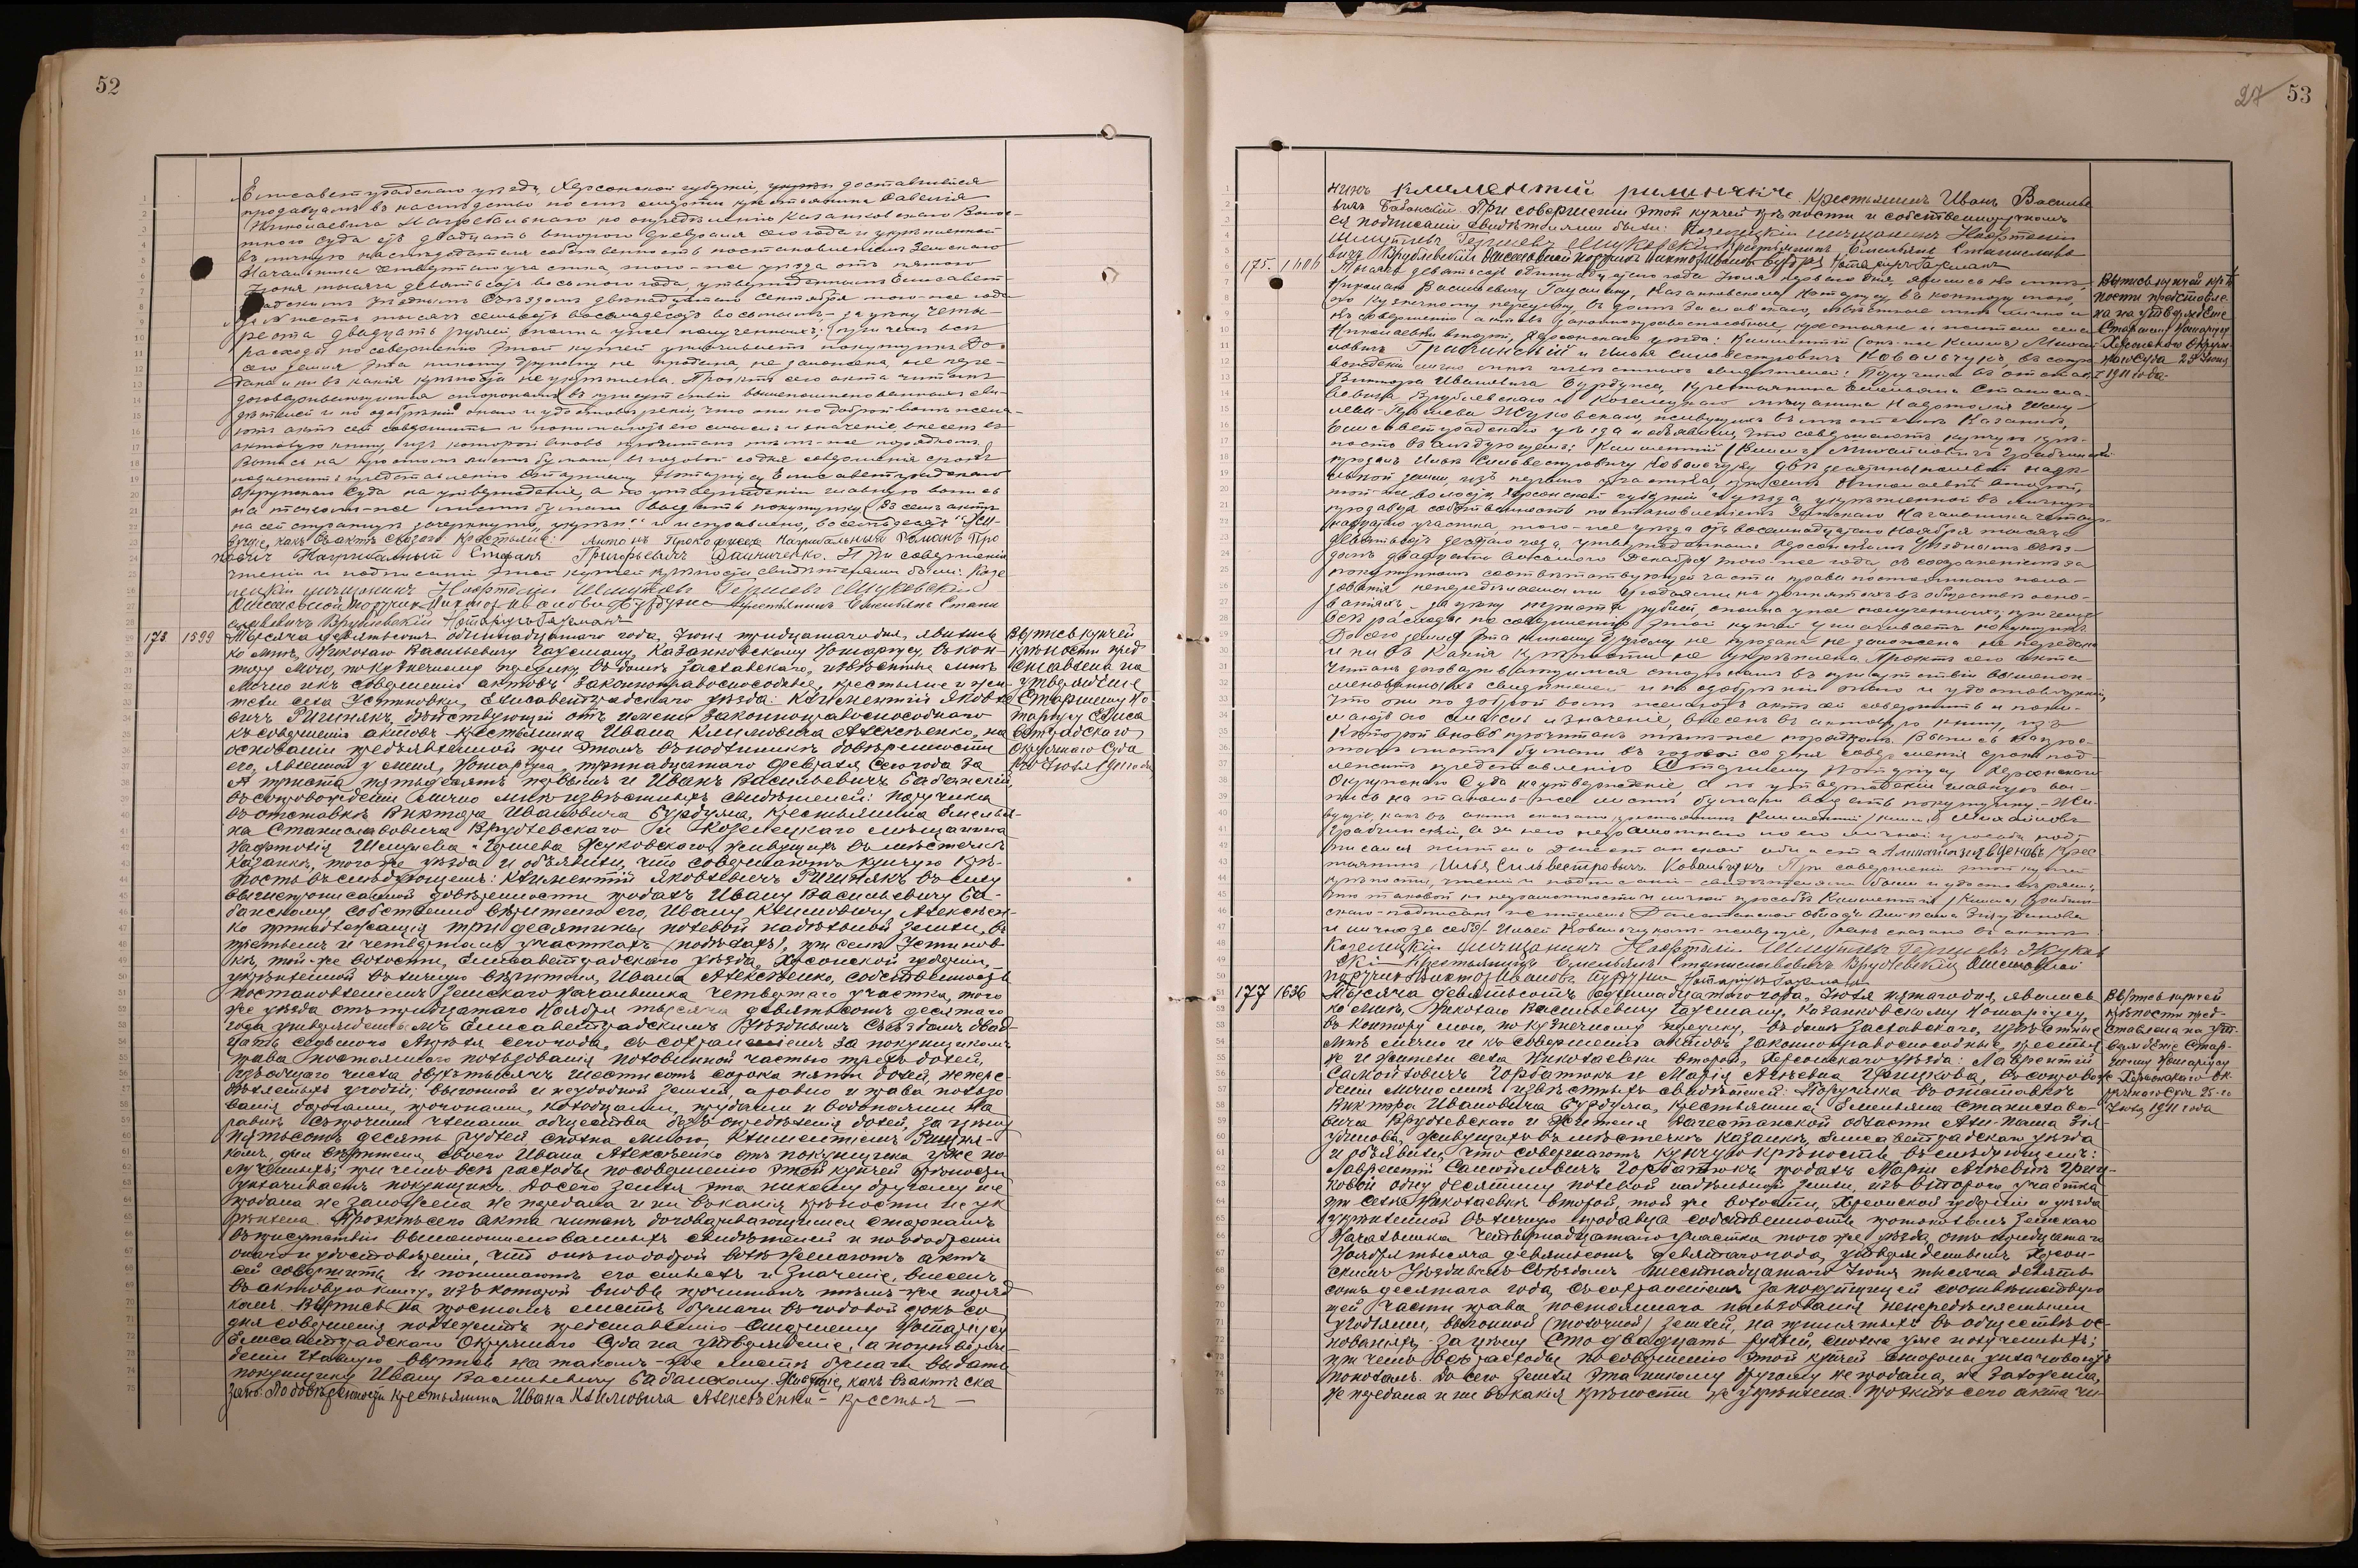 52
Елисаветградскаго уѣзда, Херсонской губерніи, доставшійся
продавцамъ въ наслѣдство по смерти крестьянина Савелія
Николаевича по опредѣленію Казанковскаго Волос-
тного Суда отъ двадцать второго Февраля сего года и укрѣпленной
въ личную наслѣдодателя собственность постановленіемъ Земскаго
Начальника четвертаго участка, того-же уѣзда отъ пятаго
Іюня тысяча девятьсотъ восьмого года, утвержденнымъ Елисавет-
градскимъ Уѣзднымъ Съѣздомъ двѣнадцатаго Сентября того-же года
за № шесть тысячъ семьсотъ восемьдесятъ восьмымъ,- за цѣну четы-
реста двадцать рублей, сполна уже полученныхъ; при чемъ всѣ
расходы по совершенію этой купчей уплачиваетъ покупщикъ. До
сего земля эта никому другому не продана, не заложена, не пере-
дана и ни въ какія крѣпости не укрѣплена. Проектъ сего акта читанъ
договаривающимся сторонамъ въ присутствіи вышепоименованныхъ сви-
дѣтелей и по одобреніи онаго и удостовѣреніи, что они по доброй волѣ жела-
ютъ актъ сей совершить и понимаютъ его смыслъ и значеніе, внесенъ въ
актовую книгу, изъ которой вновь прочитанъ тѣмъ-же порядкомъ.
Выпись на простомъ листѣ бумаги въ годовой со дня совершенія срокъ
подлежитъ представленію Старшему Нотаріусу Елисаветградскаго
Окружнаго Суда на утвержденіе, а по утвержденіи главную выпись
на такомъ-же листѣ бумаги выдать покупщику. Въ семъ актѣ
на сей страницѣ зачеркнуто и исправлено, „восемьдесятъ“. Жи-
вущіе, какъ въ актѣ сказано Крестьяне: Антонъ Прокофьевъ Романъ Про
Стефанъ Григорьевичъ Данниченко. При совершеніи
чтеніи и подписаніи этой купчей крѣпости свидѣтелями были: Козе-
лецкій мѣщанинъ Нафтолій Шмулевъ Гершевъ Жуковскій
Отставной Поручикъ Викторъ Ивановъ Бурдуна Крестьянинъ Емельянъ Стани
славовичъ Врублевскій Нотаріусъ Гаусманъ
173 1599 Тысяча девятьсотъ одиннадцатаго года, Іюня тридцатаго дня, явились
ко мнѣ, Николаю Васильевичу Гаусману, Казанковскому Нотаріусу, въ кон-
тору мою, по Кузнечному переулку, въ домѣ Заславскаго, извѣстные мнѣ
лично и къ совершенію актовъ законноправоспособные, крестьяне и жи-
тели села Устиновки, Елисаветградскаго уѣзда: Климентій Яковле
вичъ Ригинякъ, дѣйствующій отъ имени законноправоспособнаго
къ совершенію актовъ крестьянина Ивана Климовича Алексѣенко, на
основаніи предъявленной при этомъ въ подлинникѣ довѣренности
его, явленной у меня, Нотаріуса, тринадцатаго Февраля сего года за
№ триста пятьдесятъ первымъ и Иванъ Васильевичъ Бабанскій,
въ сопровожденіи лично мнѣ извѣстныхъ свидѣтелей: Поручика
въ отставкѣ Виктора Ивановича Бурдуна, крестьянина Емелья-
на Станиславовича Врублевскаго и Козелецкаго мѣщанина
Нафтолія Шмулева-Гершева Жуковскаго, живущихъ въ мѣстечкѣ
Казанкѣ, того же уѣзда и объявили, что совершаютъ купчую крѣ-
пость въ слѣдующемъ: Климентій Яковлевичъ Ригинякъ въ силу
вышепрописанной довѣренности продалъ Ивану Васильевичу Ба-
банскому, собственно вѣрителю его, Ивану Климовичу Алексѣен-
ко принадлежащія три десятины полевой надѣльной земли, въ
третьемъ и четвертомъ участкахъ (поляхъ), при селѣ Устинов-
кѣ, той-же волости, Елисаветградскаго уѣзда, Херсонской губерніи,
укрѣпленной въ личную вѣрителя, Ивана Алексѣенко, собственность
постановленіемъ Земскаго Начальника четвертаго участка, того
же уѣзда отъ тридцатаго Ноября тысяча девятьсотъ десятаго
года, утвержденнымъ Елисаветградскимъ Уѣзднымъ Съѣздомъ двад-
цать седьмого Апрѣля сего года, съ сохраненіемъ за покупщикомъ
права постояннаго пользованія половинной частью трехъ долей,
изъ общаго числа двухъ тысячъ шестисотъ сорока пяти долей, непере-
дѣляемыхъ угодій: выгонной и неудобной земли, а равно и права пользо
ванія дорогами, прогонами, колодцами, прудами и водопоями на
равнѣ съ прочими членами общества безъ опредѣленія долей, за цѣну
пятьсотъ десять рублей сполна мною, Климентіемъ Ригиня-
комъ, для вѣрителя своего Ивана Алексѣенко отъ покупщика уже по
лученныхъ; при чемъ всѣ расходы по совершенію этой купчей крѣпости
уплачиваетъ покупщикъ. До сего земля эта никому другому не
продана не заложена не передана и ни въ какія крѣпости не ук
рѣплена. Проэктъ сего акта читанъ договаривающимся сторонамъ
въ присутствіи вышепоименованныхъ свидѣтелей и по одобреніи
онаго и удостовѣреніи, что они по доброй волѣ желаютъ актъ
сей совершить и понимаютъ его смыслъ и значеніе, внесенъ
въ актовую книгу, изъ которой вновь прочитанъ тѣмъ-же поряд
комъ. Выпись на простомъ листѣ бумаги въ годовой срокъ со
дня совершенія подлежитъ представленію Старшему Нотаріусу
Елисаветградскаго Окружнаго Суда на утвержденіе, а по утверж-
деніи главную выпись на такомъ-же листѣ бумаги выдать
покупщику Ивану Васильевичу Бабанскому. Живущіе, какъ въ актѣ ска
зано. По довѣренности крестьянина Ивана Климовича Алексѣенка - Крестья -
Выпись купчей
крѣпости пред
ставлена на
утвержденіе
Старшему Но
таріусу Елиса
ветградскаго
Окружнаго Суда
Іюля 1911 года
27 53
нинъ Климентій Крестьянинъ Иванъ Василье
вичъ Бабанскій. При совершеніи этой купчей крѣпости и собственноручномъ
ея подписаніи свидѣтелями были: Козелецкій мѣщанинъ Нафтолій
Шмулевъ Гершевъ Жуковскій Крестьянинъ Емельянъ Станиславо
вичъ Врублевскій Отставной Поручикъ Викторъ Ивановъ Бурдуна Нотаріусъ Гаусманъ
175. 1606 Тысяча девятьсотъ одиннадцатаго года Іюля перваго дня, явились ко мнѣ,
Николаю Васильевичу Гаусману, Казанковскому Нотаріусу, въ контору мою,
по Кузнечному переулку, въ домѣ Заславскаго, извѣстные мнѣ лично и
къ совершенію актовъ законноправоспособные, крестьяне и жители села
Николаевки второй, Херсонскаго уѣзда: Климентій (онъ-же Климъ) Михай
ловичъ Грабчинскій и Илья Сильвестровичъ Ковальчукъ, въ сопро
вожденіи лично мнѣ извѣстныхъ свидѣтелей: Поручика въ отставкѣ
Виктора Ивановича Бурдуна, крестьянина Емельяна Станисла-
вовича Врублевскаго и Козелецкаго мѣщанина Нафтолія Шму-
лева-Гершева Жуковскаго, живущихъ въ мѣстечкѣ Казанкѣ,
Елисаветградскаго уѣзда и объявили, что совершаютъ купчую крѣ-
пость въ слѣдующемъ: Климентій (Климъ) Михайловичъ Грабчинскій
продалъ Ильѣ Сильвестровичу Ковальчуку двѣ десятины полевой надѣ-
льной земли, изъ перваго участка, при селѣ Николаевкѣ второй,
той-же волости, Херсонской губерніи и уѣзда, укрѣпленной въ личную
продавца собственность постановленіемъ Земскаго Начальника четыр-
надцатаго участка, того-же уѣзда отъ восемнадцатаго Ноября тысяча
девятьсотъ десятаго года, утвержденнымъ Херсонскимъ Уѣзднымъ Съѣз-
домъ двадцать восьмого Декабря того-же года, съ сохраненіемъ за
покупщикомъ соотвѣтствующей части права постояннаго поль-
зованія непередѣляемыми угодьями на принятыхъ въ обществѣ осно-
ваніяхъ,- за цѣну рублей, сполна уже полученныхъ; при чемъ
всѣ расходы по совершенію этой купчей уплачиваетъ покупщикъ
До сего земля эта никому другому не продана не заложена не передана
и ни въ какія крѣпости не укрѣплена. Проэктъ сего акта
читанъ договаривающимся сторонамъ въ присутствіи вышепои-
менованныхъ свидѣтелей и по одобреніи онаго и удостовѣреніи,
что они по доброй волѣ желаютъ актъ сей совершить и пони-
маютъ его смыслъ и значеніе, внесенъ въ актовую книгу, изъ
которой вновь прочитанъ тѣмъ-же порядкомъ. Выпись на прос-
томъ листѣ бумаги въ годовой со дня совершенія срокъ под-
лежитъ представленію Старшему Нотаріусу Херсонскаго
Окружнаго Суда на утвержденіе, а по утвержденіи главную вы-
пись на такомъ-же листѣ бумаги выдать покупщику.- Жи-
вущіе, какъ въ актѣ сказано крестьянинъ Климентій (Климъ) Михайловъ
Грабчинскій, а за него неграмотнаго по его личной просьбѣ под-
писался житель Дагестанской области Крес
тьянинъ Илья Сильвестровичъ Ковальчукъ При совершеніи этой купчей
крѣпости, чтеніи и подписаніи - свидѣтелями были и удостовѣрили,
что таковой по неграмотности и личной просьбѣ Климентія (Клима) Грабчин
скаго-подписалъ житель Дагестанской области
и лично за себя Ильей Ковальчукомъ - живущіе, какъ сказано въ актѣ
Козелецкій мѣщанинъ Нафтолій Шмулевъ Гершевъ Жуков
скій Крестьянинъ Емельянъ Станиславовичъ Врублевскій Отставной
поручикъ Викторъ Ивановъ Бурдуна Нотаріусъ Гаусманъ
Выпись купчей крѣ
пости представле
на на утвержденіе
Старшему Нотаріусу
Херсонскаго Окруж-
наго Суда
1911 года.
177 1636 Тысяча девятьсотъ одиннадцатаго года, Іюля пятаго дня, явились
ко мнѣ, Николаю Васильевичу Гаусману, Казанковскому Нотаріусу,
въ контору мою, по Кузнечному переулку, въ домѣ Заславскаго, извѣстные
мнѣ лично и къ совершенію актовъ законноправоспособные, крестья
не и жители села Николаевки второй, Херсонскаго уѣзда: Лаврентій
Самойловичъ Горбатюкъ и Марія Грицкова, въ сопровож
деніи лично мнѣ извѣстныхъ свидѣтелей: Поручика въ отставкѣ
Виктора Ивановича Бурдуна, крестьянина Емельяна Станиславо-
вича Врублевскаго и Жителя Дагестанской области
живущихъ въ мѣстечкѣ Казанкѣ, Елисаветградскаго уѣзда
и объявили, что совершаютъ купчую крѣпость въ слѣдующемъ:
Лаврентій Самойловичъ Горбатюкъ продалъ Маріи Гриц-
ковой одну десятину полевой надѣльной земли, изъ второго участка
при селѣ Николаевкѣ второй, той же волости, Херсонской губерніи и уѣзда
укрѣпленной въ личную продавца собственность протоколомъ Земскаго
Начальника четырнадцатаго участка того же уѣзда, отъ тридцатаго
Ноября тысяча девятьсотъ девятаго года, утвержденнымъ Херсон-
скимъ Уѣзднымъ Съѣздомъ шестнадцатаго Іюня тысяча девять-
сотъ десятаго года, съ сохраненіемъ за покупщицей соотвѣтствую
щей части права постояннаго пользованія непередѣляемыми
угодьями, выгонной (толочной) землей, на принятыхъ въ обществѣ ос-
нованіяхъ - за цѣну сто двадцать рублей, сполна уже полученныхъ;
при чемъ всѣ расходы по совершенію этой купчей стороны уплачиваютъ
пополамъ. До сего земля эта никому другому не продана, не заложена,
не передана и ни въ какія крѣпости не укрѣплена. Проэктъ сего акта чи-
Выпись купчей
крѣпости пред-
ставлена на утв-
ержденіе Стар-
шему Нотаріусу
Херсонскаго Ок-
ружнаго Суда 25-го
Іюля 1911 года